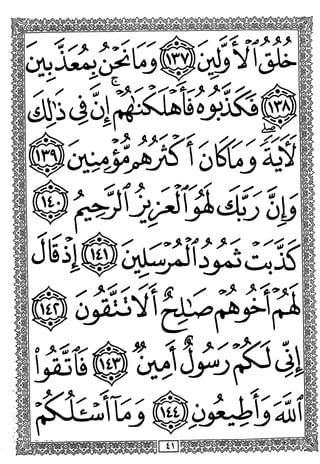 خُلُقُ ٱلْأَوَّلِينَ ١٣٧ وَمَا نَحْنُ بِمُعَذَّبِينَ
١٣٨ فَكَذَّبُوهُ فَأَهْلَكْنَٰهُمْ ۗ إِنَّ فِى ذَٰلِكَ
لَءَايَةً ۖ وَمَا كَانَ أَكْثَرُهُم مُّؤْمِنِينَ ١٣٩
وَإِنَّ رَبَّكَ لَهُوَ ٱلْعَزِيزُ ٱلرَّحِيمُ ١٤٠
كَذَّبَتْ ثَمُودُ ٱلْمُرْسَلِينَ ١٤١ إِذْ قَالَ
لَهُمْ أَخُوهُمْ صَٰلِحٌ أَلَا تَتَّقُونَ ١٤٢
إِنِّى لَكُمْ رَسُولٌ أَمِينٌ ١٤٣ فَٱتَّقُوا۟
ٱللَّهَ وَأَطِيعُونِ ١٤٤ وَمَآ أَسْـَٔلُكُمْ
٤١